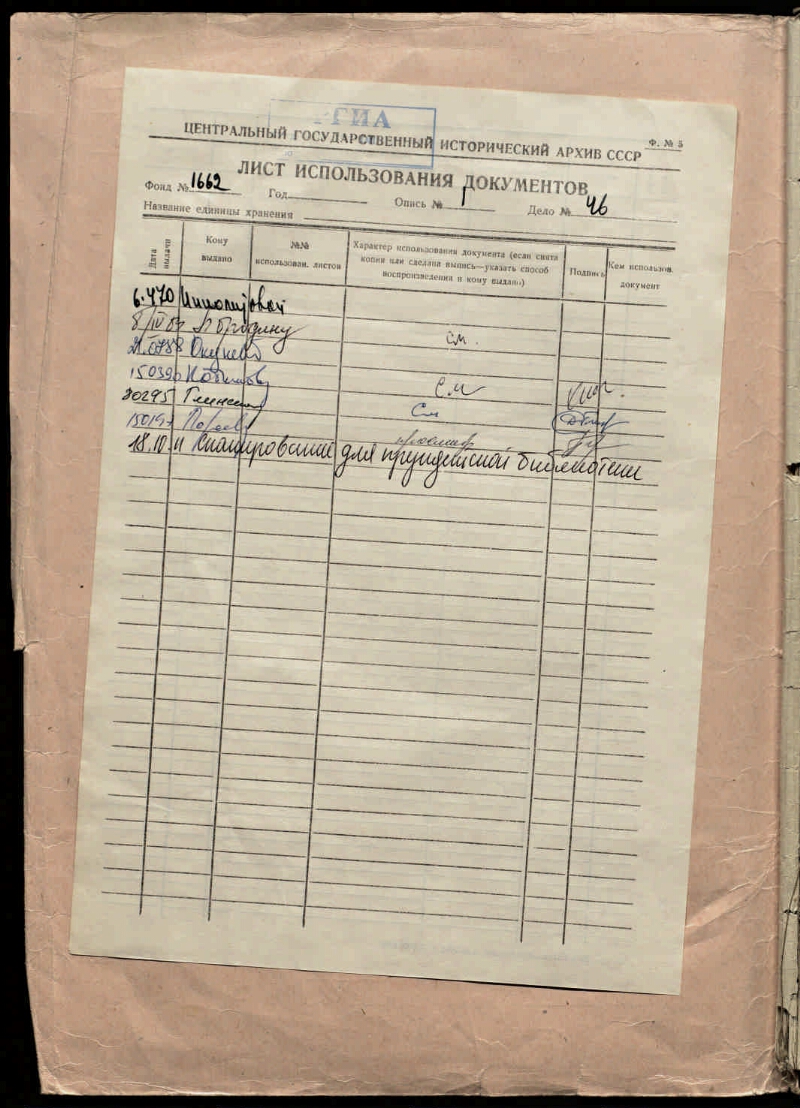 РГИА
Ф. № 5
ЦЕНТРАЛЬНЫЙ ГОСУДАРСТВЕННЫЙ ИСТОРИЧЕСКИЙ АРХИВ СССР
ЛИСТ ИСПОЛЬЗОВАНИЯ ДОКУМЕНТОВ
Фонд № 1662 Год Опись № 1 Дело № 46
Название единицы хранения
Дата выдачи
Кому выдано
№№ использован. листов
Характер использования документа (если снята копия или сделана выпись—указать способ воспроизведения и кому выдано)
Подпись
Кем использов. документ
6.470
8/IV 
см.
см
30295
См
просмотр
18.10.11 Сканирование для президентской библиотеки